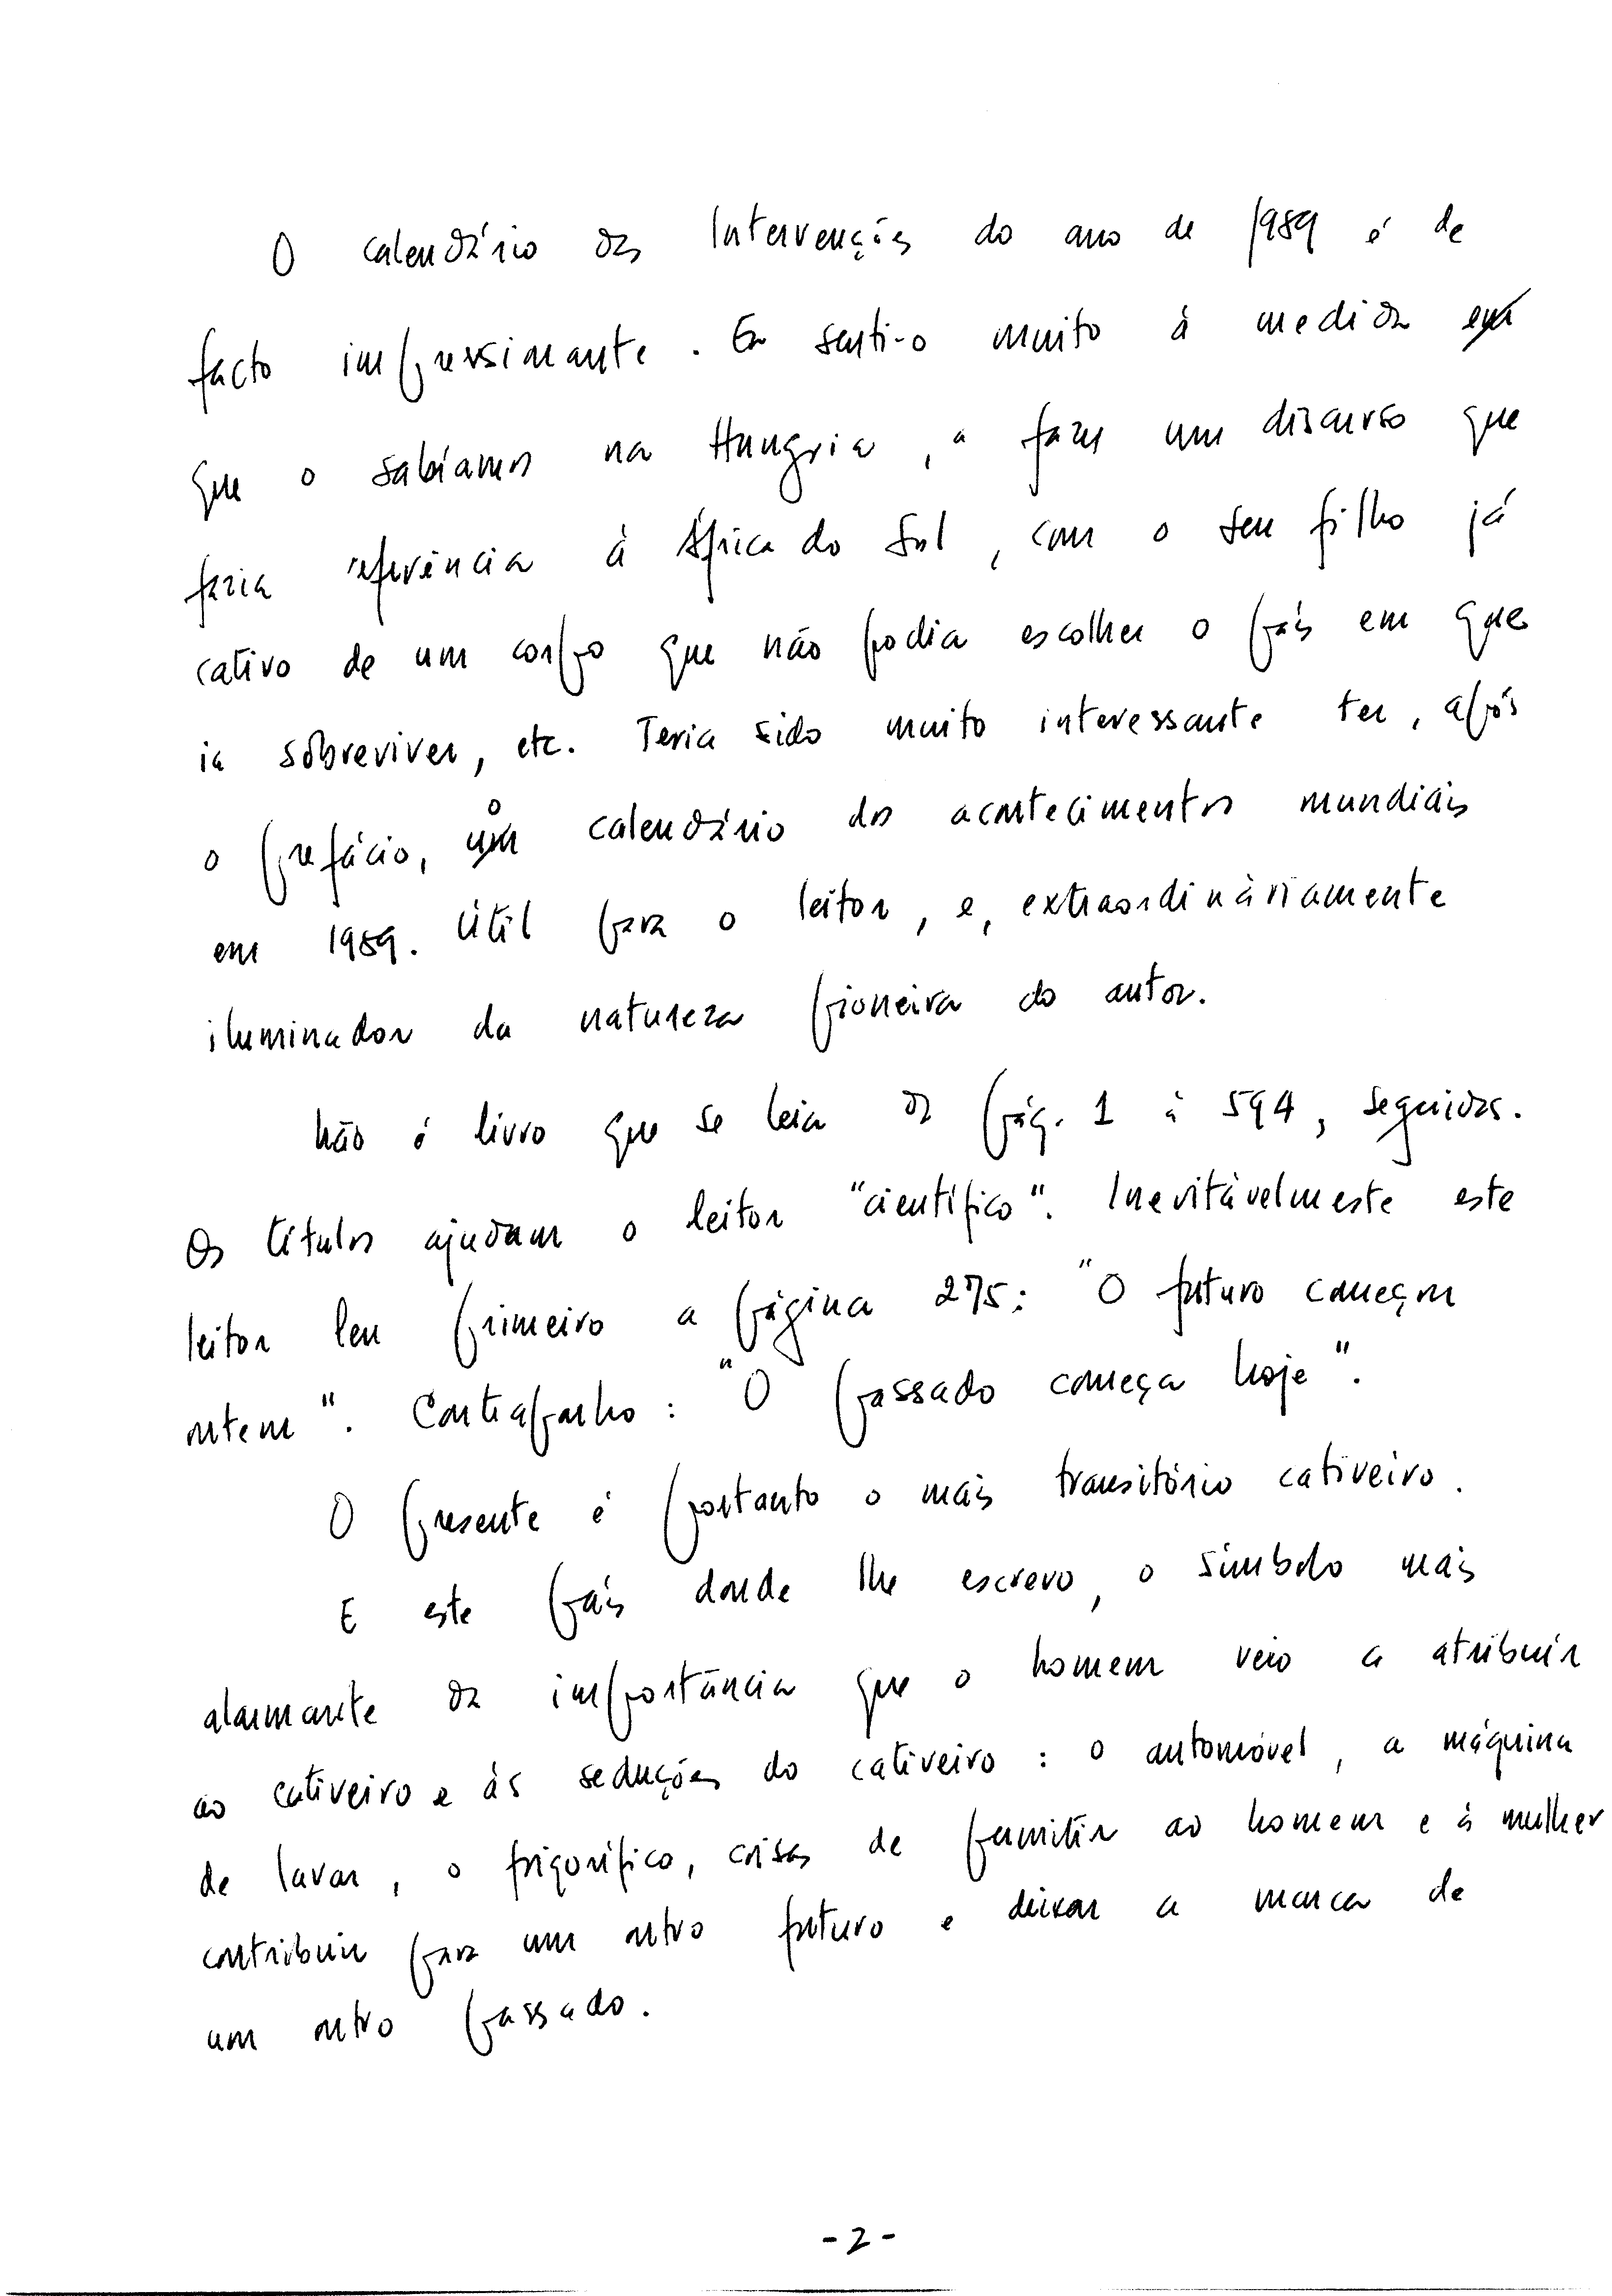 O calendário das Intervenções do ano de 1989 é de
facto impressionante. Eu senti-o muito à medida em
que o sabíamos na Hungria, a fazer um discurso que
fazia referência à África do Sul, com o seu filho já
cativo de um corpo que não podia escolher o país em que
ia sobreviver, etc. Teria sido muito interessante ter, após
o prefácio, um o calendário dos acontecimentos mundiais
em 1989. Útil para o leitor, e, extraordinàriamente
iluminador da natureza pioneira do autor.
Não é livro que se leia da pág. 1 à 594, seguidas.
Os títulos ajudam o leitor "científico". Inevitàvelmente este
leitor leu primeiro a página 275: "O futuro começou
ontem". Contraponho: "O passado começa hoje".
O presente é portanto o mais transitório cativeiro.
E este país donde lhe escrevo, o símbolo mais
alarmante da importância que o homem veio a atribuir
ao cativeiro e às seduções do cativeiro: o automóvel, a máquina
de lavar, o frigorífico, coisas de permitir ao homem e à mulher
contribuir para um outro futuro e deixar a marca de
um outro passado.
- 2 -